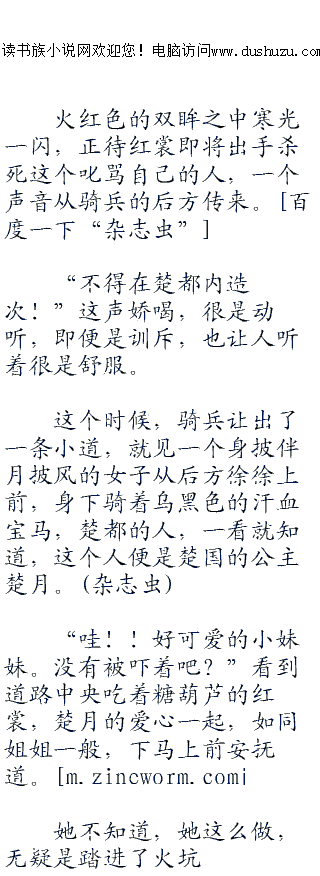 读书族小说网欢迎您！电脑访问www.dushuzu.com
火红色的双眸之中寒光
一闪，正待红裳即将出手杀
死这个叱骂自己的人，一个
声音从骑兵的后方传来。[百
度一下“杂志虫”]
“不得在楚都内造
次！”这声娇喝，很是动
听，即便是训斥，也让人听
着很是舒服。
这个时候，骑兵让出了
一条小道，就见一个身披伴
月披风的女子从后方徐徐上
前，身下骑着乌黑色的汗血
宝马，楚都的人，一看就知
道，这个人便是楚国的公主
楚月。(杂志虫)
“哇！！好可爱的小妹
妹。没有被吓着吧？”看到
道路中央吃着糖葫芦的红
裳，楚月的爱心一起，如同
姐姐一般，下马上前安抚
道。[m.zincworm.comi
她不知道，她这么做，
无疑是踏进了火坑